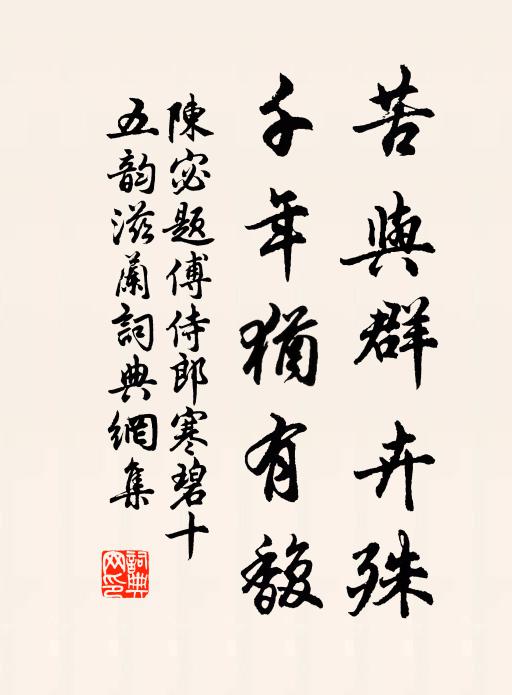 苦與群卉殊
千年猶有馥
陳宓題傅侍郎寒碧十
五韵滋蘭詞典網集
詞典
网印